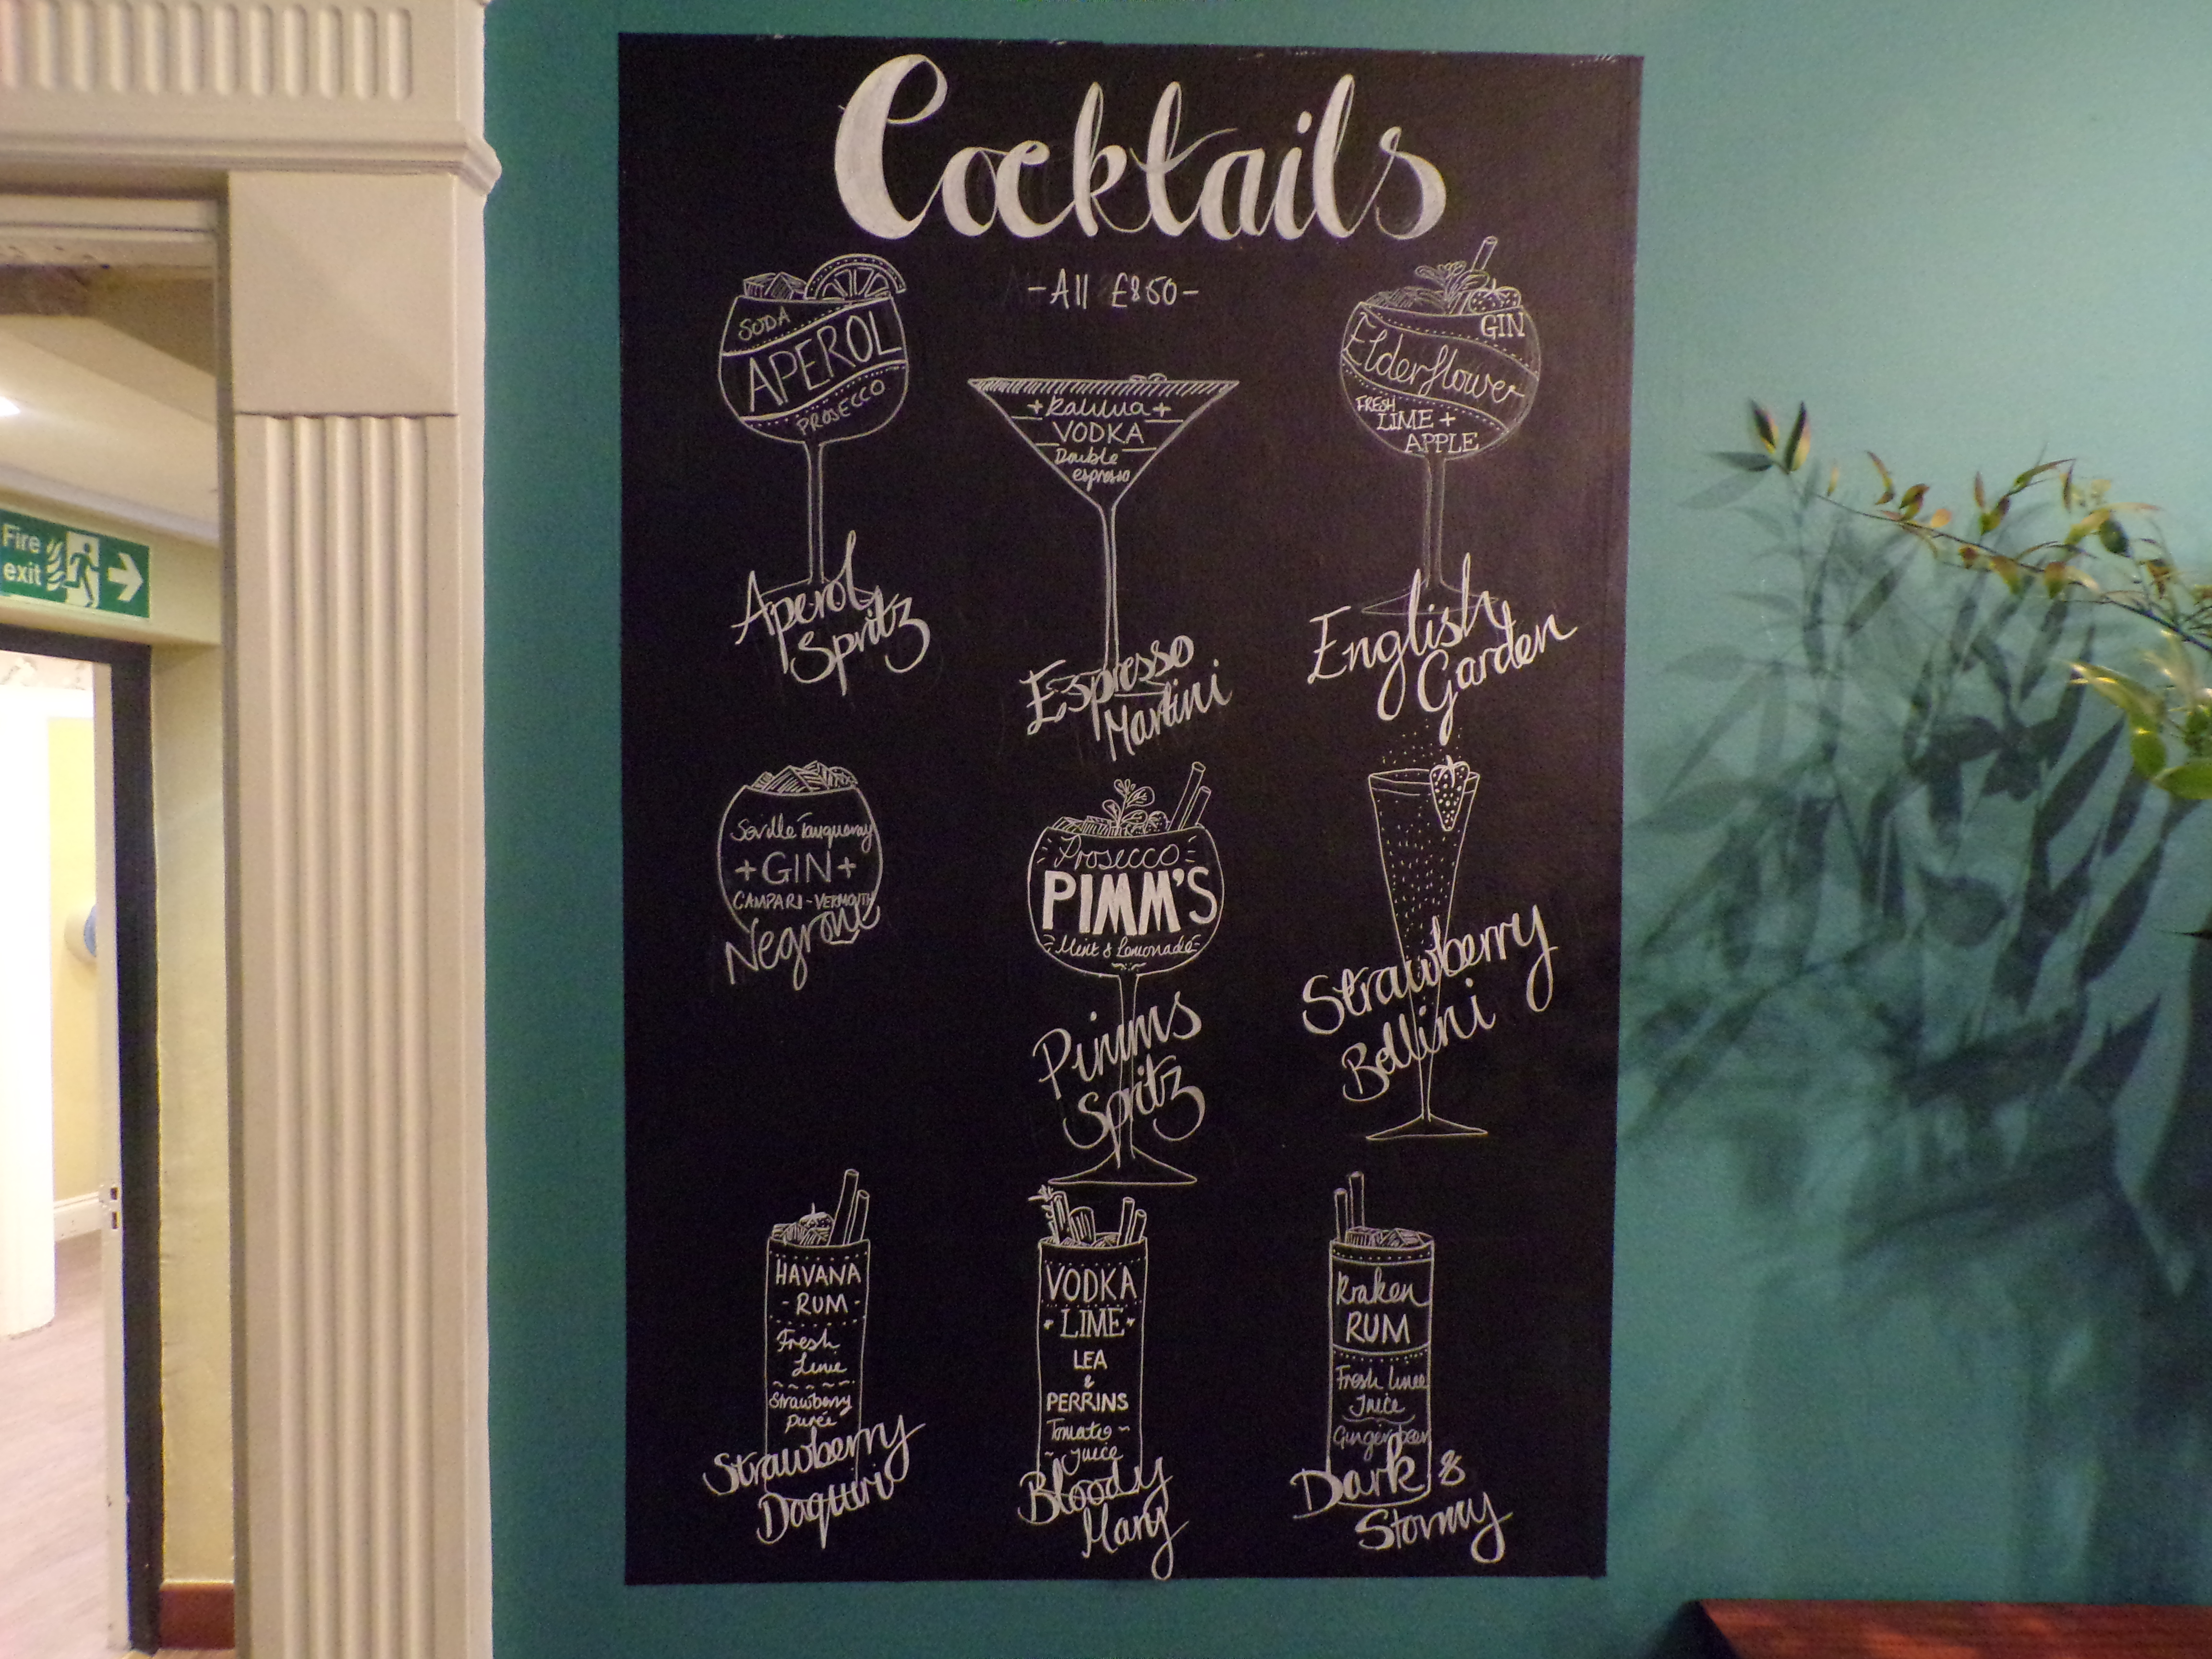 Cocktails
-All £8.50-
SODA
APEROL
PROSECCO
Aperol
Spritz
+Kahlua+
VODKA
Double
espresso
Espresso
Martini
GIN
Elderflower
FRESH
LIME +
APPLE
English
Garden
Seville Tanqueray
+GIN+
CAMPARI-VERMOUTH
Negroni
Prosecco
PIMM'S
Mint & Lemonade
Pimms
Spritz
Strawberry
Bellini
HAVANA
-RUM-
Fresh
Lime
Strawberry
purée
Strawberry
Daquiri
VODKA
LIME
LEA
&
PERRINS
Tomato
juice
Bloody
Mary
Kraken
RUM
Fresh lime
Juice
Ginger beer
Dark &
Stormy
Fire
exit